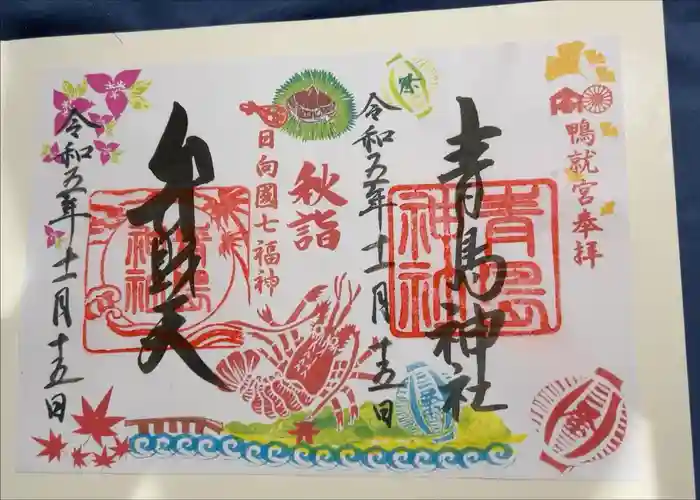 鴨就宮奉拝
青島神社
青島
神社
令和五年十一月十五日
祭
秋詣
日向國七福神
弁財天
青島
神社
令和五年十一月十五日
祭